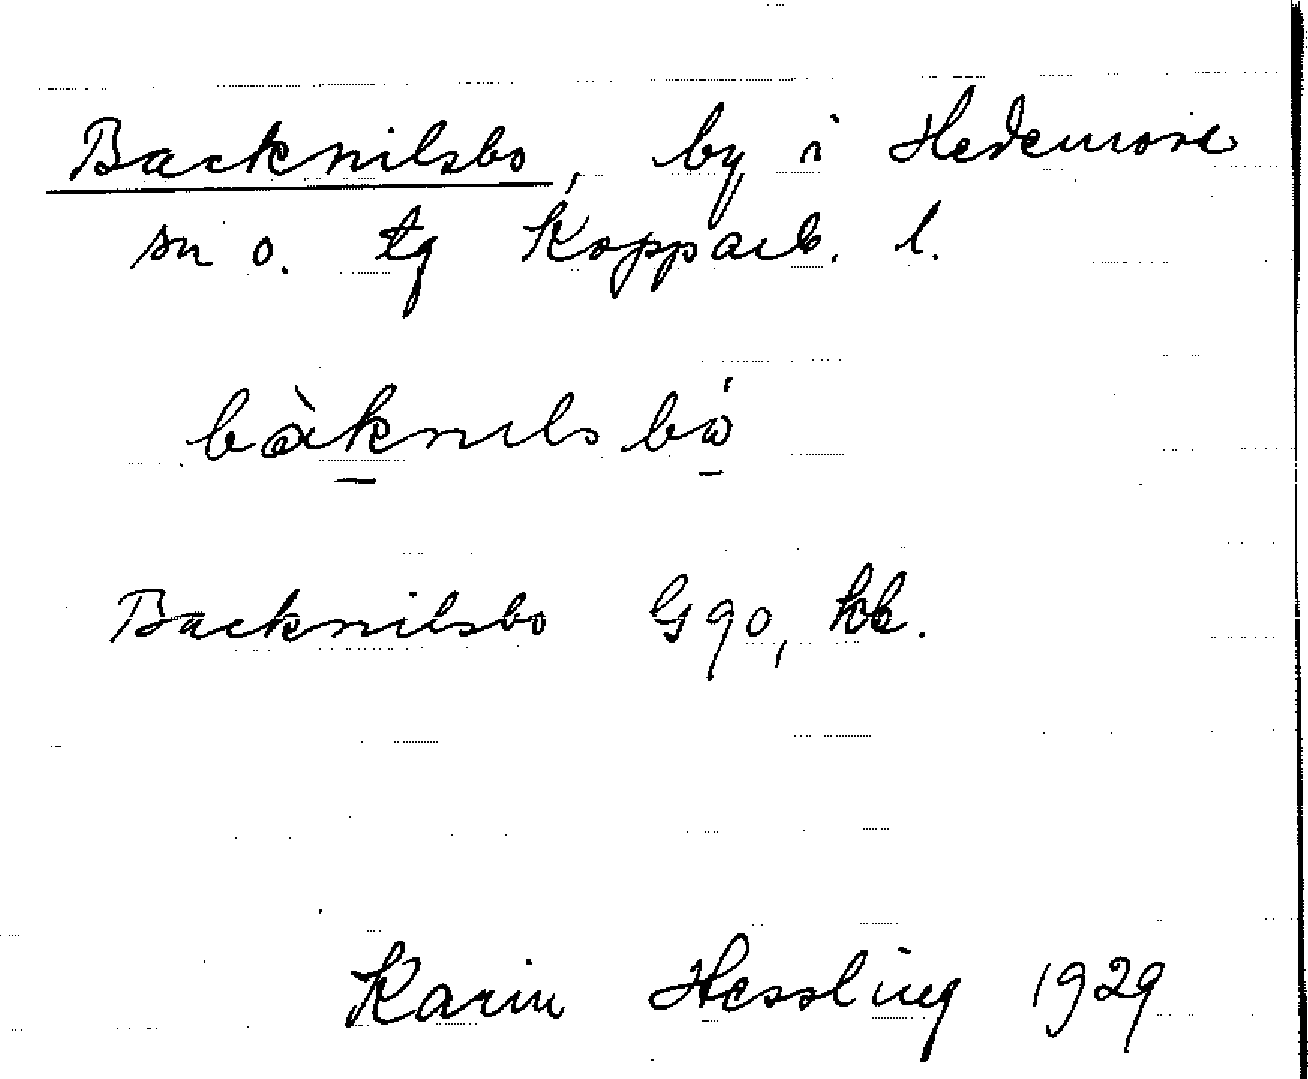 Backnilsbo, by i Hedemora
sn o. tg Kopparb. l.
bàknilsbó
Backnilsbo G90, kk.
Karin Hessling 1929